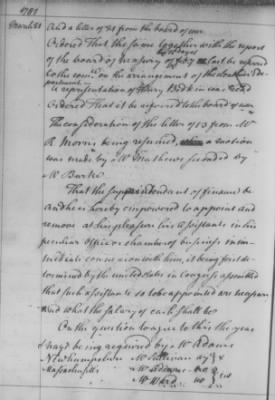 1781
March 21
And a letter of 21 from the board of war
Ordered That the same together with the report
of the board of treasury of feby last be referred
to the comee on the arrangement of the
department
A representation of Henry was read
Ordered That it be referred to the board of war
The consideration of the letter of 13 from Mr
R. Morris being resumed, a motion
was made by Mr Mathews seconded by
Mr Burke
That the superintendant of finance be
and he is hereby empowered to appoint and
remove at his pleasure his assistants in his
peculiar office or chamber of business in im-
mediate connexion with him, it being first de-
termined by the united states in Congress assembled
that such assistants so to be appointed are necessary
and what the salary of each shall be
On the question to agree to this the yeas
& nays being required by Mr Adams
Newhampshire Mr Sullivan ay
Massachusetts Mr Adams no
Mr Ward no